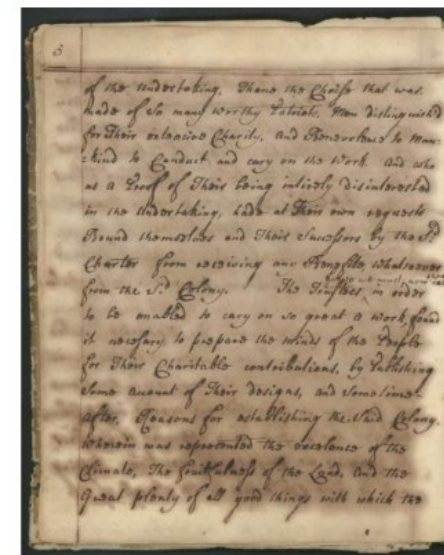 3
of the Undertaking, Thane the Choise that was
made of so many worthy Patriots. Men distinguish'd
for Their extensive Charity, And Benevolence to Man-
=kind to Conduct and cary on the Work. And who
as a Proof of Their being intirely disinterested
in the Undertaking, hade at Their own requests
Bound themselves and Their Successors by the Sd
Charter from receiving any Benefits whatsoever
from the Sd Colony. The Trustees, in order
to be enabled to cary on so great a Work, found
it necesary to prepare the minds of the People
for Their Charitable contributions, by Publishing
Some account of Their designs, and Sometime
after, Reasons for establishing the Said Colony.
wherein was represented the excelence of the
Climate, The fruitfulness of the Land, And the
Great plenty of all good things with which the